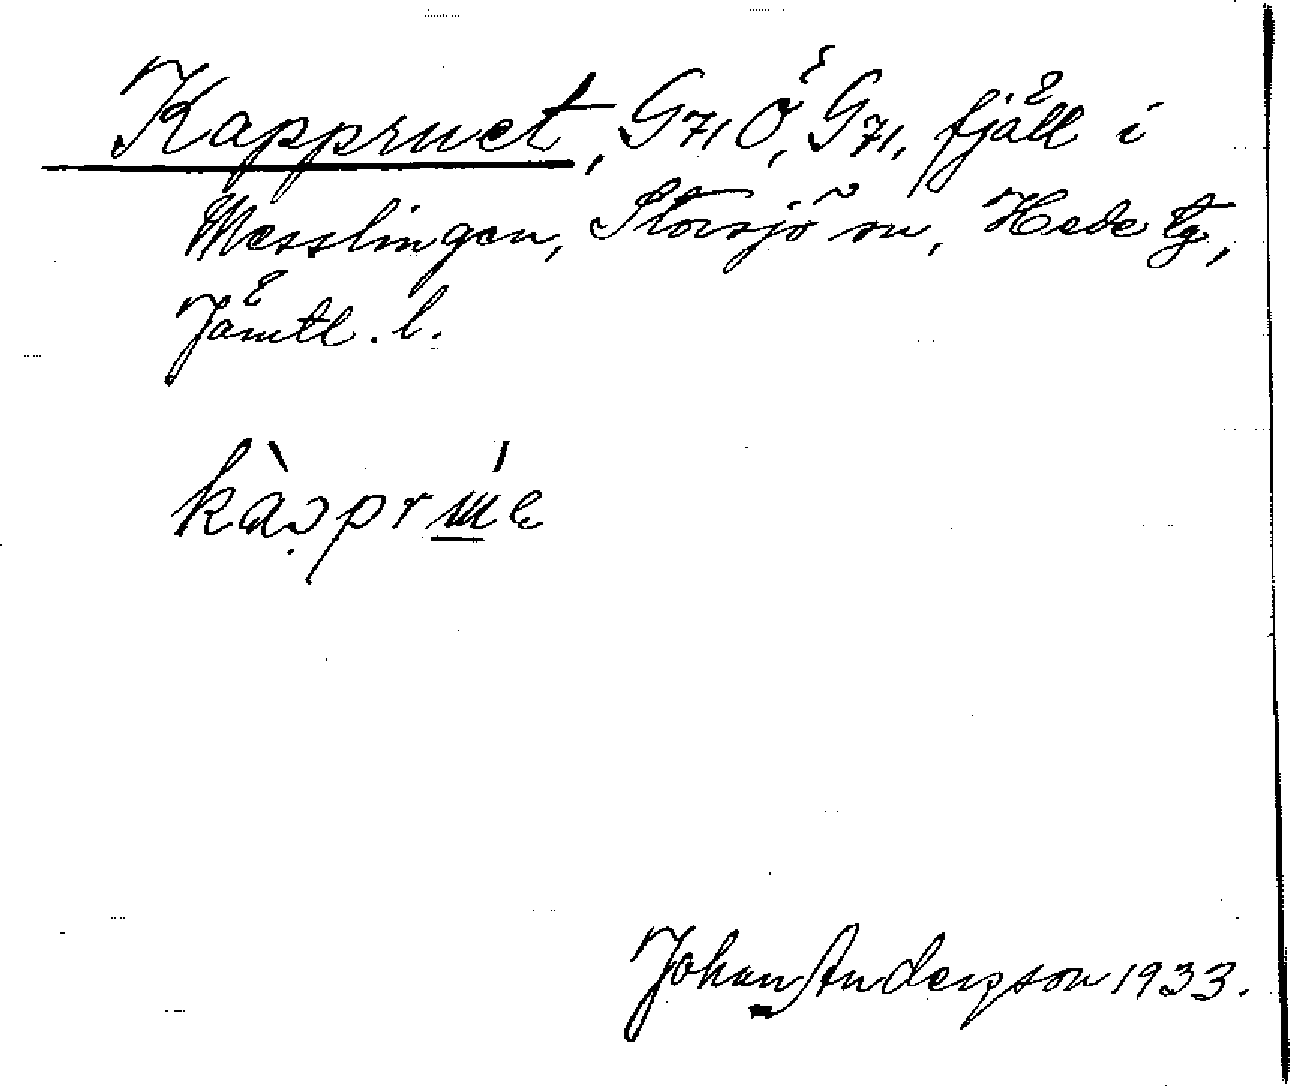 Kappruet, G71Ö, G71, fjäll i
Messlingen, Storsjö sn, Hede tg,
Jämtl. l.
Johan Andersson 1933.